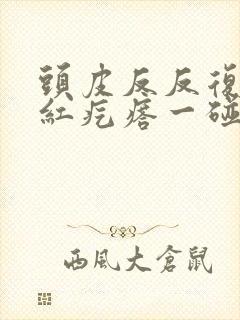 頭皮反反復
紅疙瘩一碰
西風大倉鼠